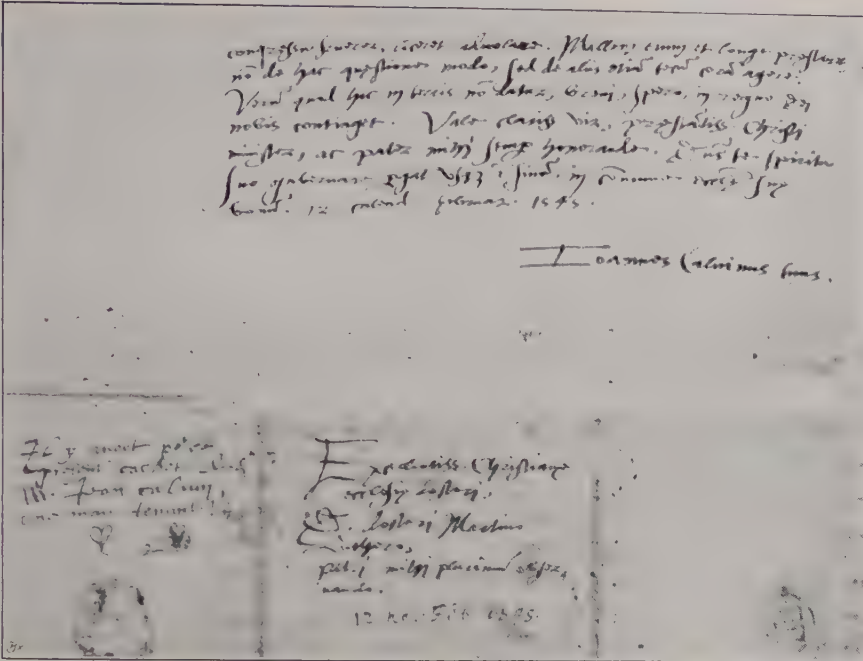 liceret advolare. Mallem enim et longe præstaret
nō de hac quæstione modo, sed de aliis etiā tecū corā agere.
Verū quod hic in terris nō datur, brevi, spero, in regno Dei
nobis continget. Vale clariss. vir, præstātiss. Christi
minister, ac pater mihi semp honorande. Dn̄s te spiritu
suo gubernare pergat usq; ī finē, in cōmune eccłiæ suæ
bonū. 12 calend februar. 1545.
Ioannes Calvinus tuus.
Il y avoit
cachet
M. Jean calvin,
une main tenant
Excellentiss. Christianæ
ecclesiæ pastori,
D. doctori Martino
Luthero,
patri mihi plurimū obser,
vando.
12 Feb 1545.